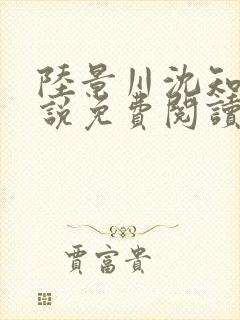 陸景川沈知
說免費閱讀
賈富貴